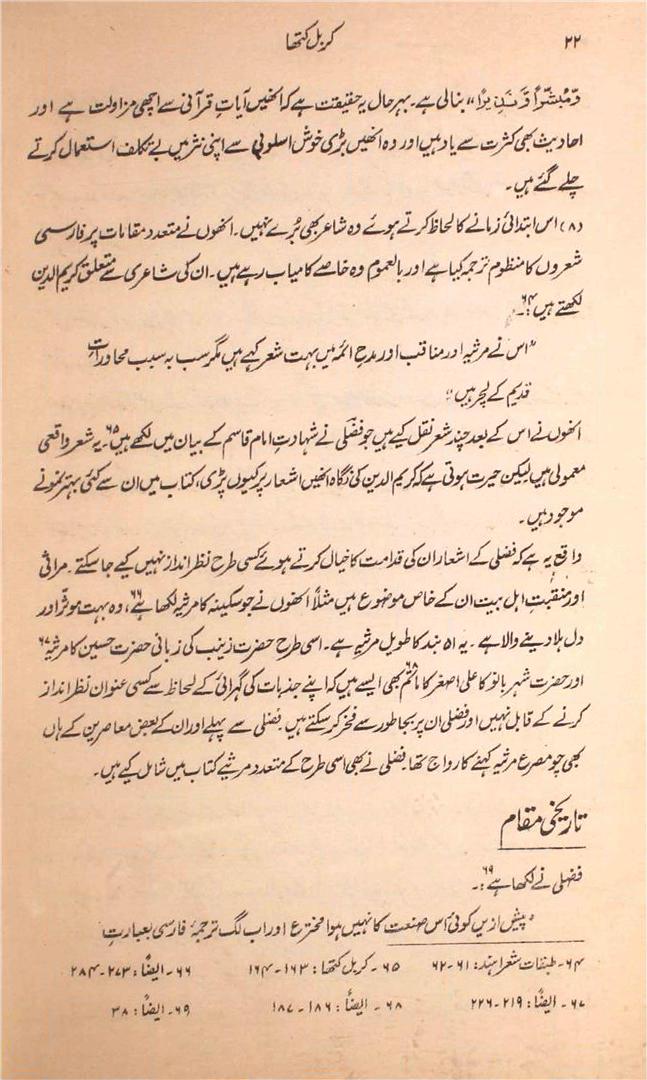 ۲۲
کربل کتھا
وَّ مُبَشِّراً وَّ نَذِیْرًا" بنالی ہے۔ بہرحال یہ حقیقت ہے کہ انھیں آیاتِ قرآنی سے اچھی مزاولت ہے اور
احادیث بھی کثرت سے یاد ہیں اور وہ انھیں بڑی خوش اسلوبی سے اپنی نثر میں بے تکلف استعمال کرتے
چلے گئے ہیں۔
(۸) اس ابتدائی زمانے کا لحاظ کرتے ہوئے وہ شاعر بھی بُرے نہیں۔ انھوں نے متعدد مقامات پر فارسی
شعروں کا منظوم ترجمہ کیا ہے اور بالعموم وہ خاصے کامیاب رہے ہیں۔ ان کی شاعری سے متعلق کریم الدین
لکھتے ہیں ۶۴:۔
"اس نے مرثیہ اور مناقب اور مدحِ ائمہ میں بہت شعر کہے ہیں مگر سب بہ سبب محاوراتِ
قدیم کے لچر ہیں"
انھوں نے اس کے بعد چند شعر نقل کیے ہیں جو فضلی نے شہادتِ امام قاسم کے بیان میں لکھے ہیں ۶۵۔ یہ شعر واقعی
معمولی ہیں لیکن حیرت ہوتی ہے کہ کریم الدین کی نگاہ انھیں اشعار پر کیوں پڑی، کتاب میں ان سے کئی بہتر نمونے
موجود ہیں۔
واقع یہ ہے کہ فضلی کے اشعار ان کی قدامت کا خیال کرتے ہوئے کسی طرح نظر انداز نہیں کیے جا سکتے۔ مراثی
اور منقبتِ اہل بیت ان کے خاص موضوع ہیں مثلاً انھوں نے جو سکینہ کا مرثیہ لکھا ہے ۶۶، وہ بہت موثر اور
دل ہلا دینے والا ہے۔ یہ ۵۱ بند کا طویل مرثیہ ہے۔ اسی طرح حضرت زینب کی زبانی حضرت حسین کا مرثیہ ۶۷
اور حضرت شہر بانو کا علی اصغر کا ماتم ۶۸ بھی ایسے ہیں کہ اپنے جذبات کی گہرائی کے لحاظ سے کسی عنوان نظر انداز
کرنے کے قابل نہیں اور فضلی ان پر بجا طور سے فخر کر سکتے ہیں۔ فضلی سے پہلے اور ان کے بعض معاصرین کے ہاں
بھی چو مصرع مرثیہ کہنے کا رواج تھا۔ فضلی نے بھی اسی طرح کے متعدد مرثیے کتاب میں شامل کیے ہیں۔
تاریخی مقام
فضلی نے لکھا ہے ۶۹:۔
"پیش ازیں کوئی اس صنعت کا نہیں ہوا مخترع اور اب لگ ترجمۂ فارسی بعبارتِ
۶۴۔ طبقات شعراہند: ۶۱-۶۲ ۶۵۔ کربل کتھا: ۱۶۳-۱۶۴ ۶۶۔ ایضاً: ۲۷۳-۲۸۴
۶۷۔ ایضاً: ۲۱۹-۲۲۶ ۶۸۔ ایضاً: ۱۸۶-۱۸۷ ۶۹۔ ایضاً: ۳۸